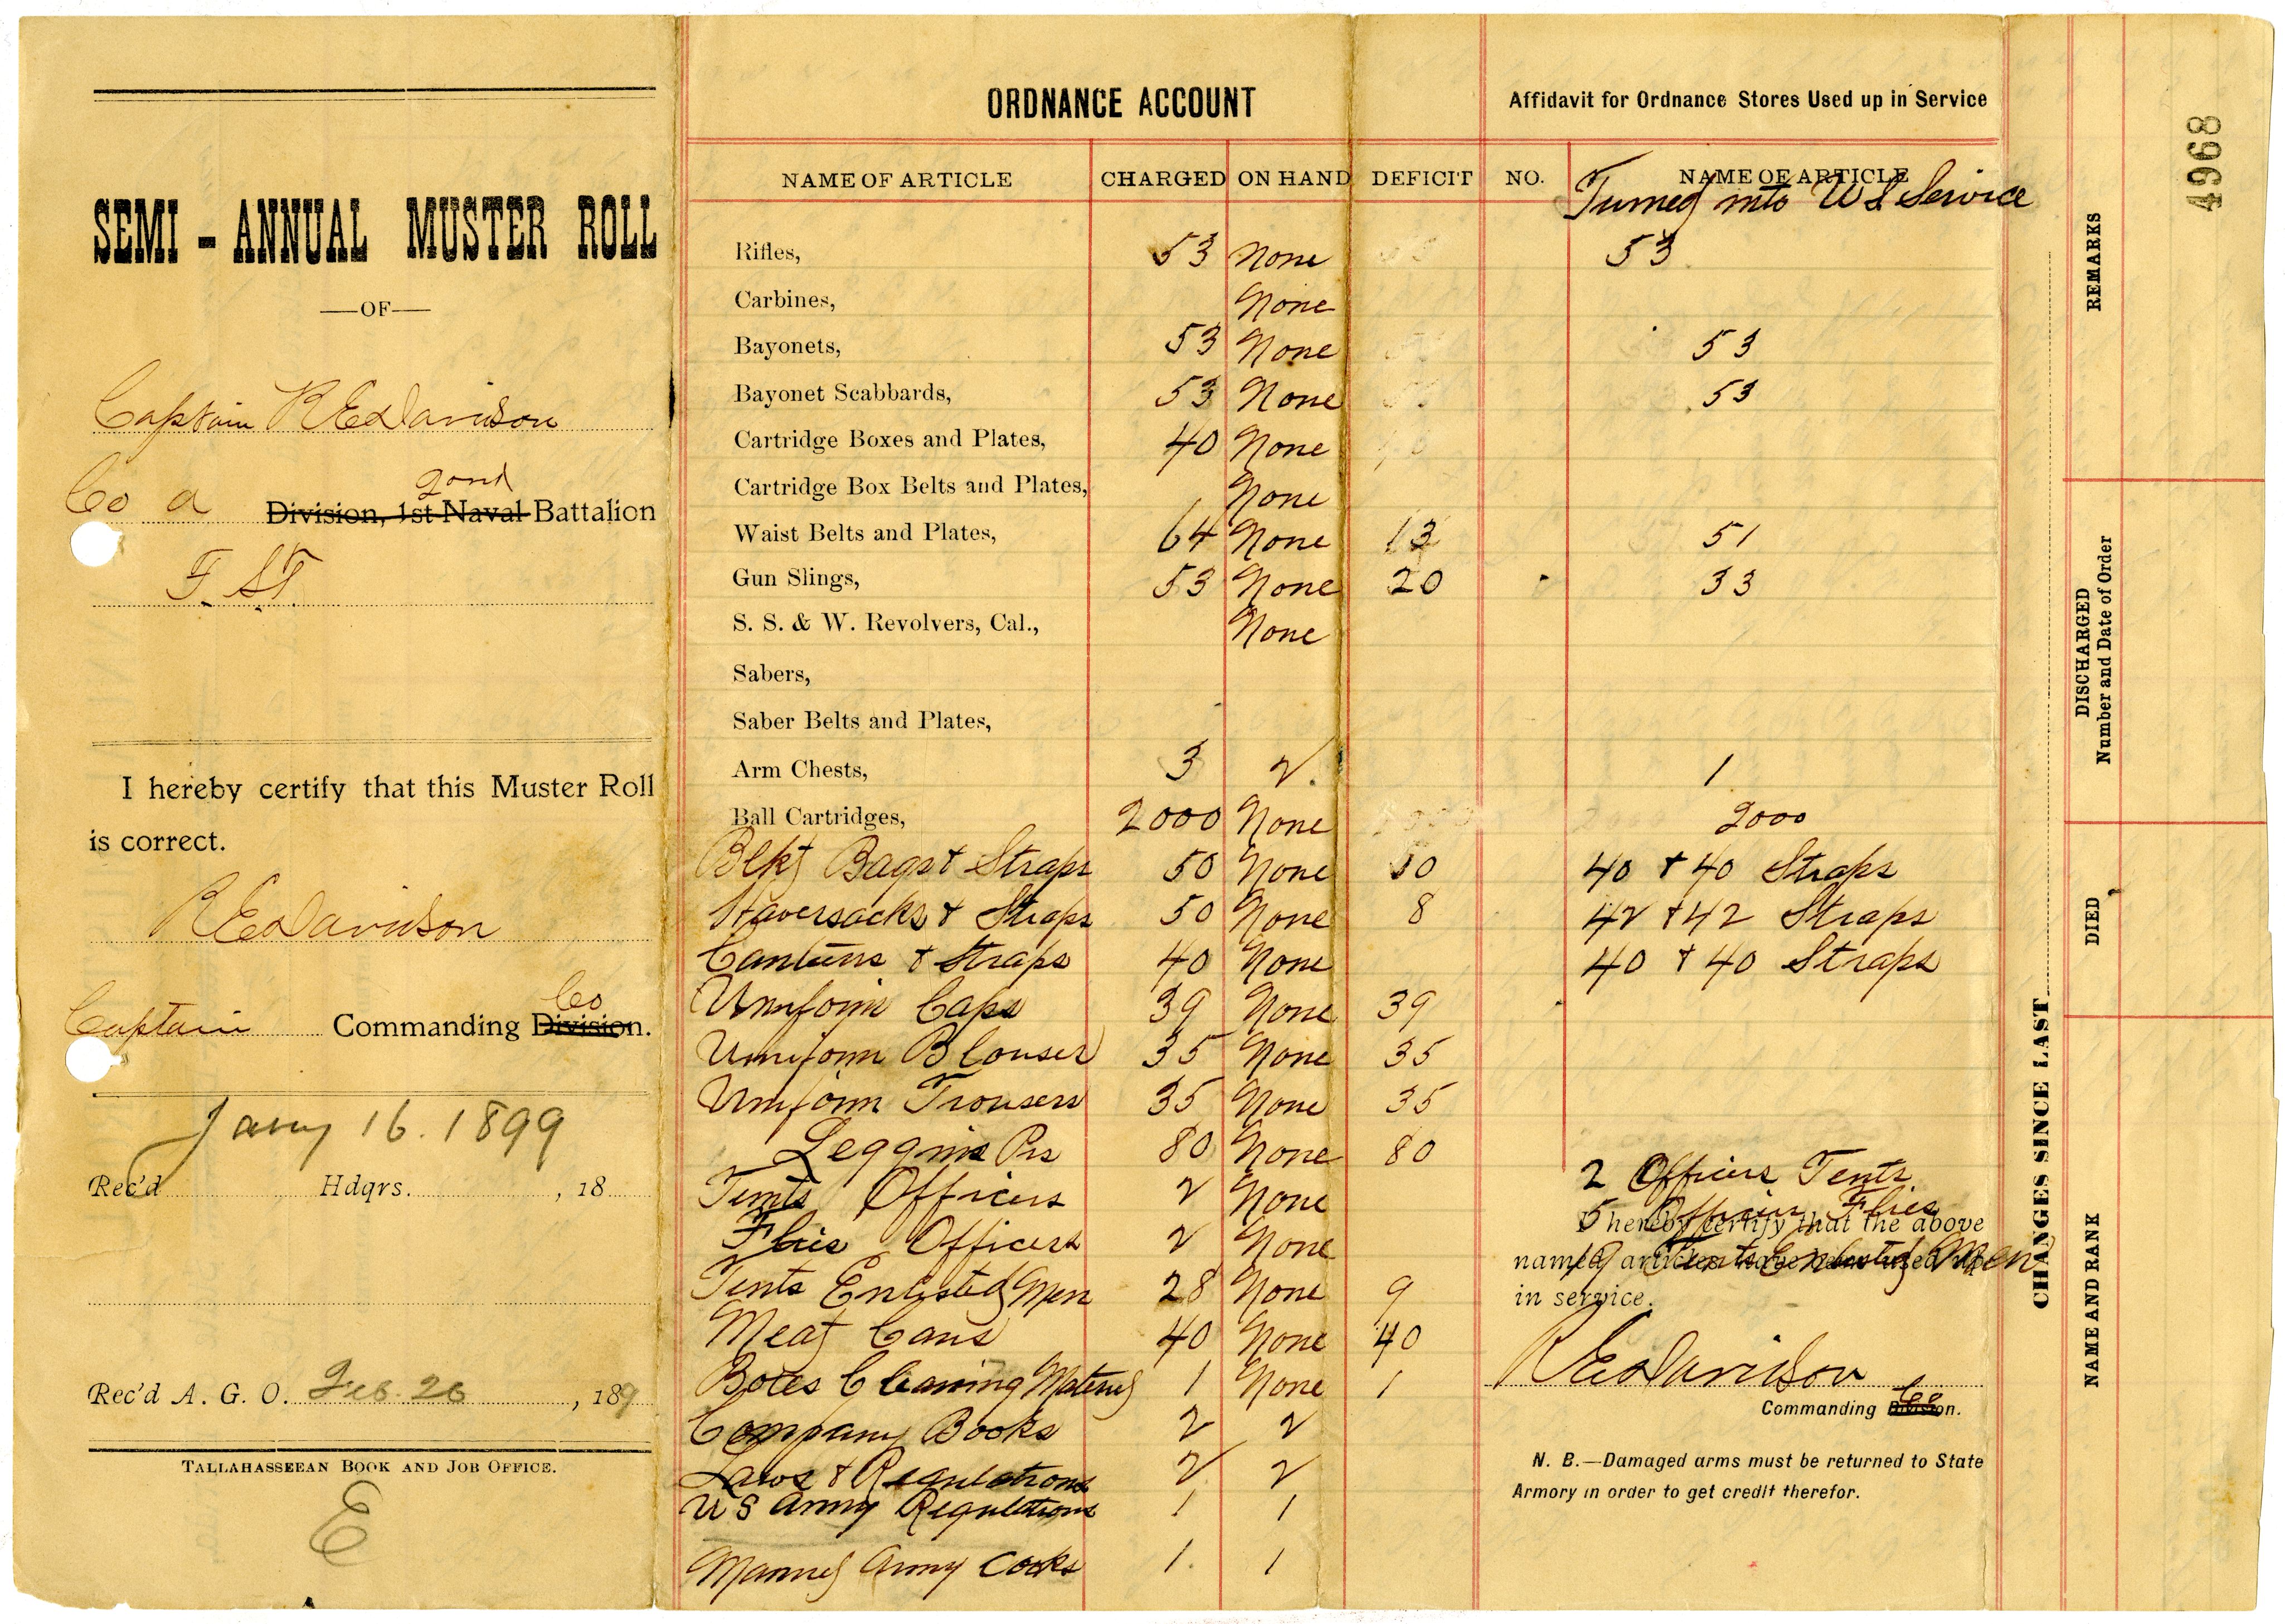 SEMI - ANNUAL MUSTER ROLL
—OF—
Captain R E Davidson
2ond
Co a Division, 1st Naval Battalion
F. S.T.
I hereby certify that this Muster Roll
is correct.
R E Davidson
Co
Captain Commanding Division.
Jany 16. 1899
Rec'd Hdqrs. , 18
Rec'd A. G. O. Feb. 26 , 189
TALLAHASSEEAN BOOK AND JOB OFFICE.
E
ORDNANCE ACCOUNT
Affidavit for Ordnance Stores Used up in Service
NAME OF ARTICLE CHARGED ON HAND DEFICIT NO. NAME OF ARTICLE
Turned into US Service
Rifles, 53 None 53
Carbines, None
Bayonets, 53 None 53
Bayonet Scabbards, 53 None 53
Cartridge Boxes and Plates, 40 None
Cartridge Box Belts and Plates, None
Waist Belts and Plates, 64 None 13 51
Gun Slings, 53 None 20 33
S. S. & W. Revolvers, Cal., None
Sabers,
Saber Belts and Plates,
Arm Chests, 3 2. 1
Ball Cartridges, 2000 None 2000
Blkt Bags & Straps 50 None 10 40 & 40 Straps
Haversacks & Straps 50 None 8 42 & 42 Straps
Canteens & Straps 40 None 40 & 40 Straps
Uniform Caps 39 None 39
Uniform Blouses 35 None 35
Uniform Trousers 35 None 35
Leggins Prs 80 None 80
Tents Officers 2 None 2 Officers Tents
Flies Officers 2 None 5 Officers Flies
Tents Enlisted Men 28 None 9 19 Tents Enlisted Men
Meat Cans 40 None 40
Boxes Cleaning Material 1 None 1
Company Books 2 2
Laws & Regulations 2 2
U S Army Regulations 1 1
Manuel Army Cooks 1. 1
I hereby certify that the above
named articles have been used up
in service.
R E Davidson
Co
Commanding Division.
N. B.—Damaged arms must be returned to State
Armory in order to get credit therefor.
CHANGES SINCE LAST
NAME AND RANK
DIED
DISCHARGED
Number and Date of Order
REMARKS
4968